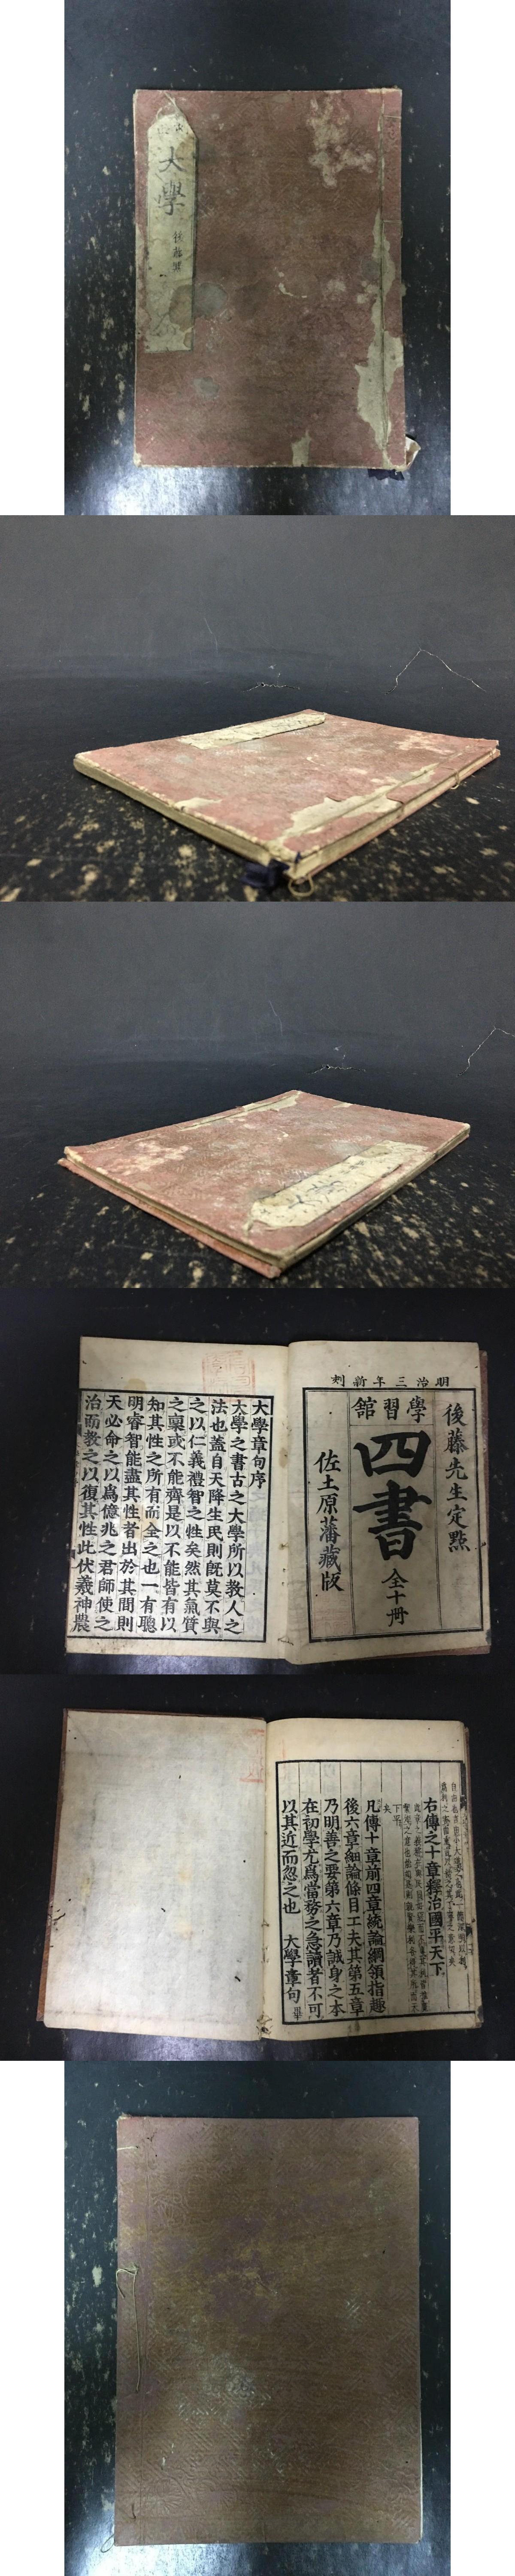 大學
後藤點
明治三年新刻
後藤先生定點
學習館
四書
全十冊
佐土原藩藏版
大學章句序
大學之書古之大學所以教人之
法也蓋自天降生民則既莫不與
之以仁義禮智之性矣然其氣質
之稟或不能齊是以不能皆有以
知其性之所有而全之也一有聰
明睿智能盡其性者出於其間則
天必命之以爲億兆之君師使之
治而教之以復其性此伏羲神農
右傳之十章釋治國平天下
凡傳十章前四章統論綱領指趣
後六章細論條目工夫其第五章
乃明善之要第六章乃誠身之本
在初學尤爲當務之急讀者不可
以其近而忽之也
大學章句畢